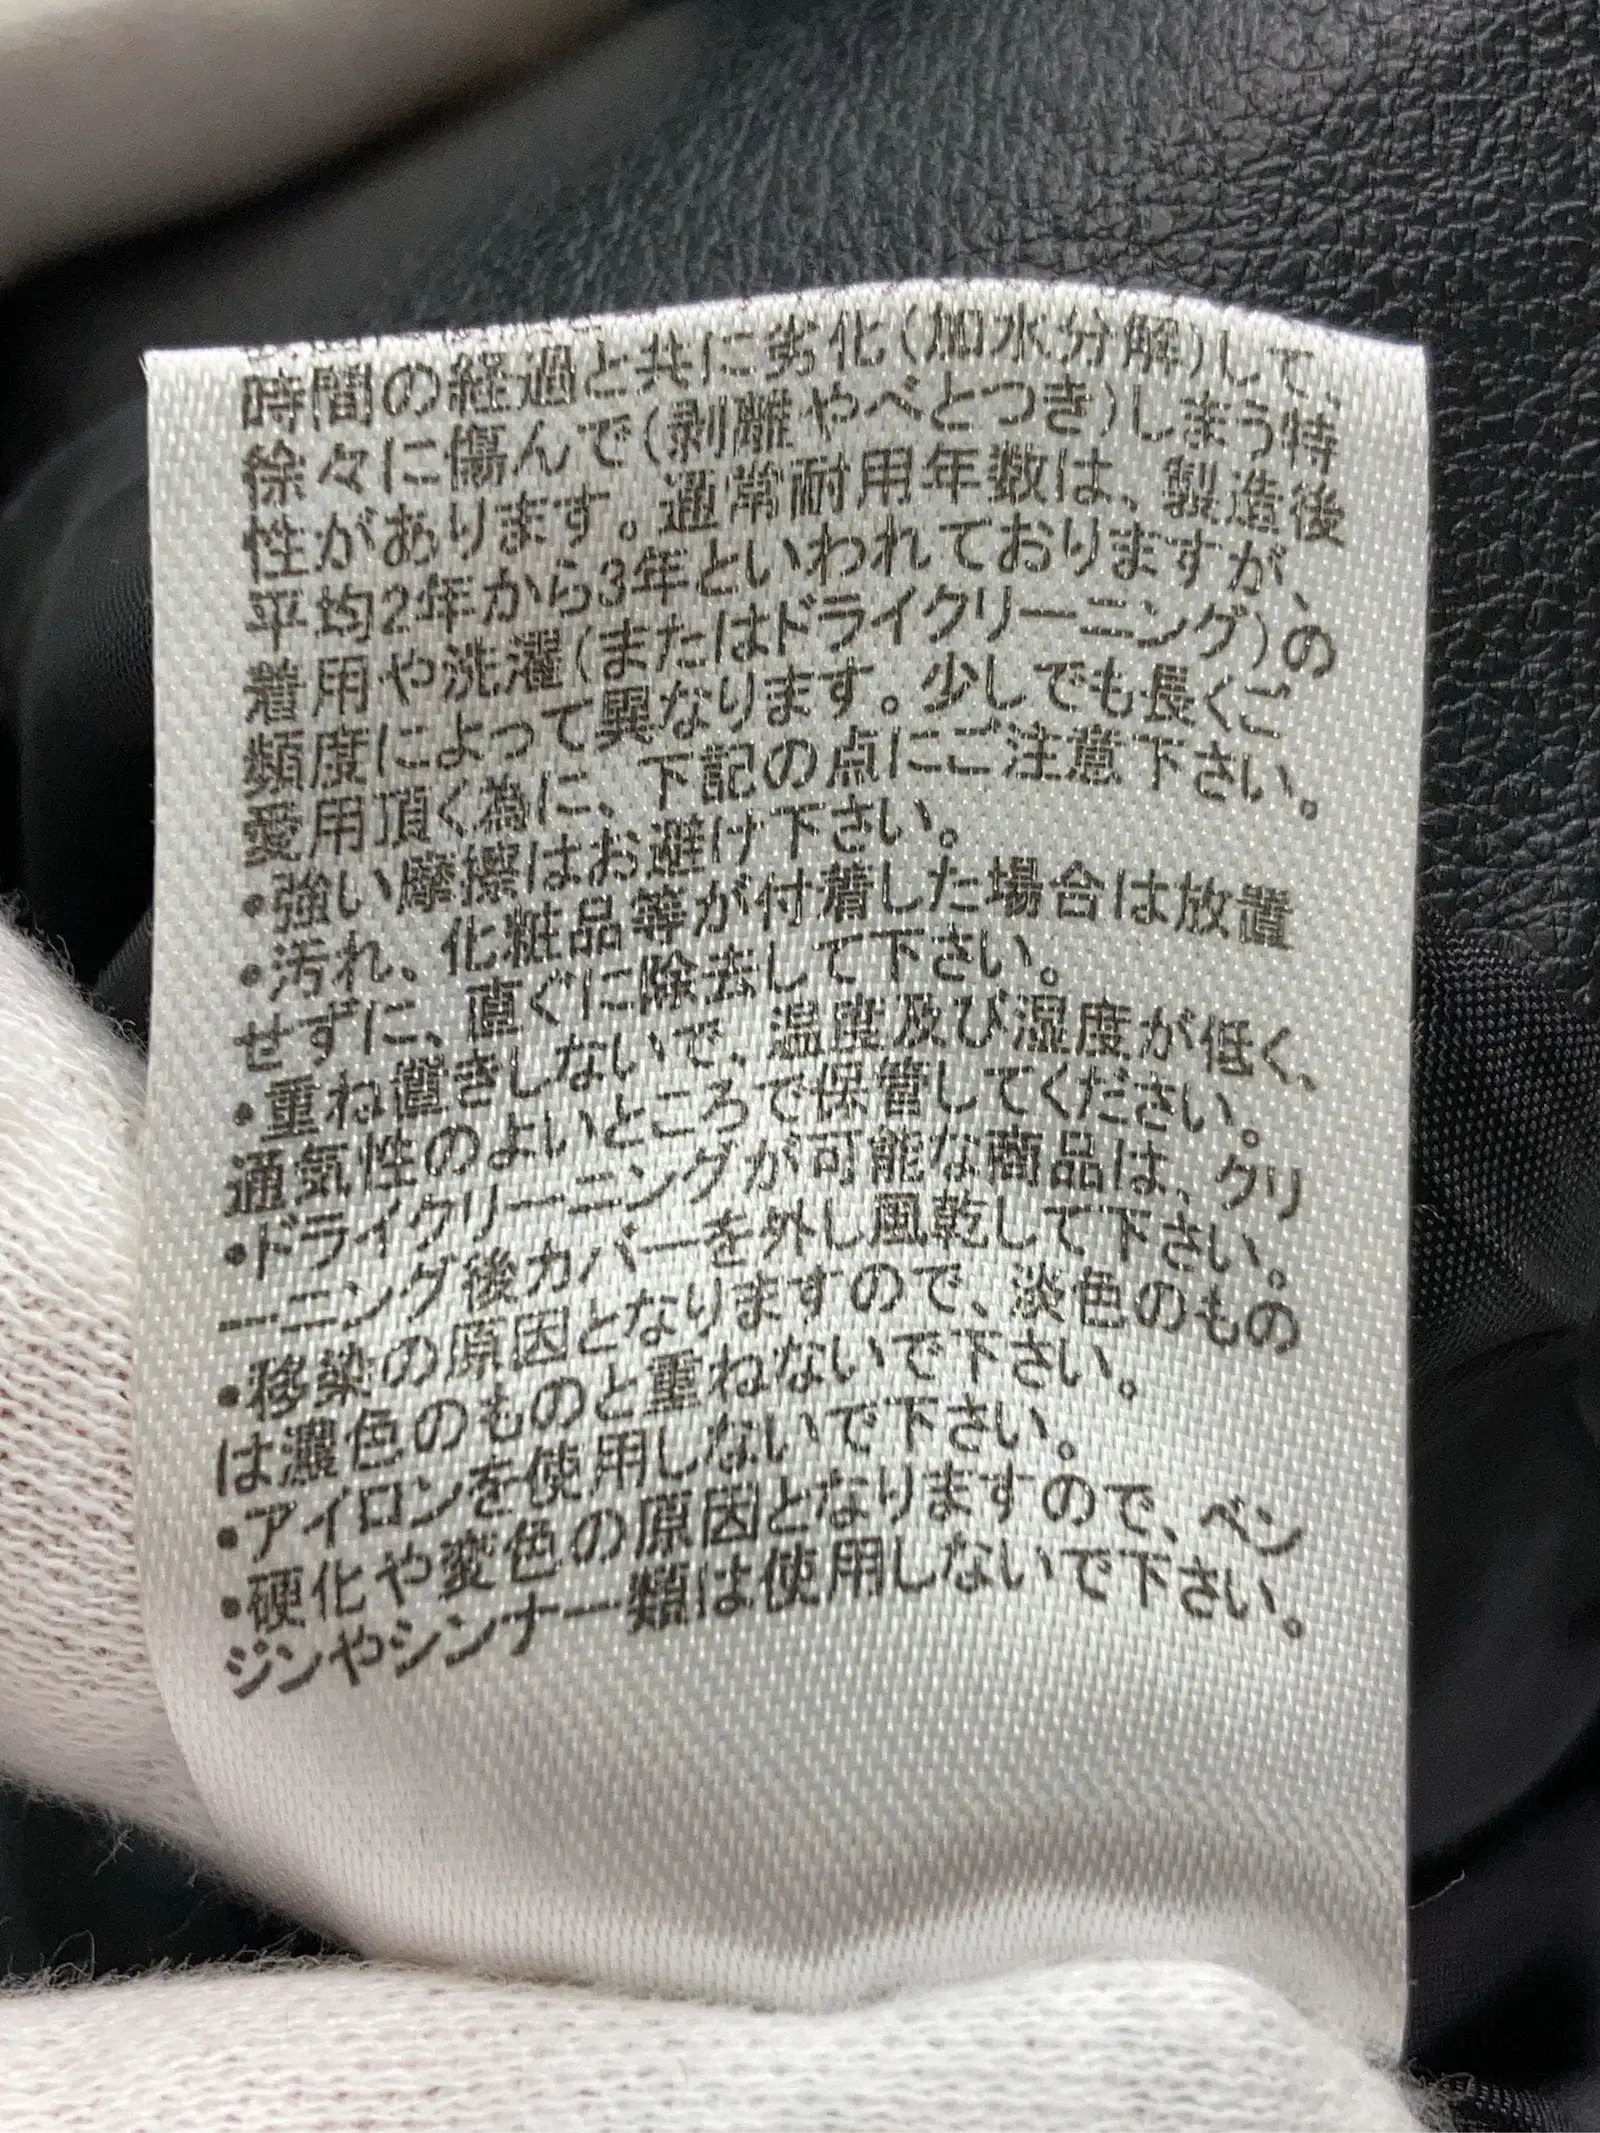 時間の経過と共に劣化(加水分解)して、
徐々に傷んで(剥離やべとつき)しまう特
性があります。通常耐用年数は、製造後
平均2年から3年といわれておりますが、
着用や洗濯(またはドライクリーニング)の
頻度によって異なります。少しでも長くご
愛用頂く為に、下記の点にご注意下さい。
•強い摩擦はお避け下さい。
•汚れ、化粧品等が付着した場合は放置
せずに、直ぐに除去して下さい。
•重ね置きしないで、温度及び湿度が低く、
通気性のよいところで保管してください。
•ドライクリーニングが可能な商品は、クリ
ーニング後カバーを外し風乾して下さい。
•移染の原因となりますので、淡色のもの
は濃色のものと重ねないで下さい。
•アイロンを使用しないで下さい。
•硬化や変色の原因となりますので、ベン
ジンやシンナー類は使用しないで下さい。